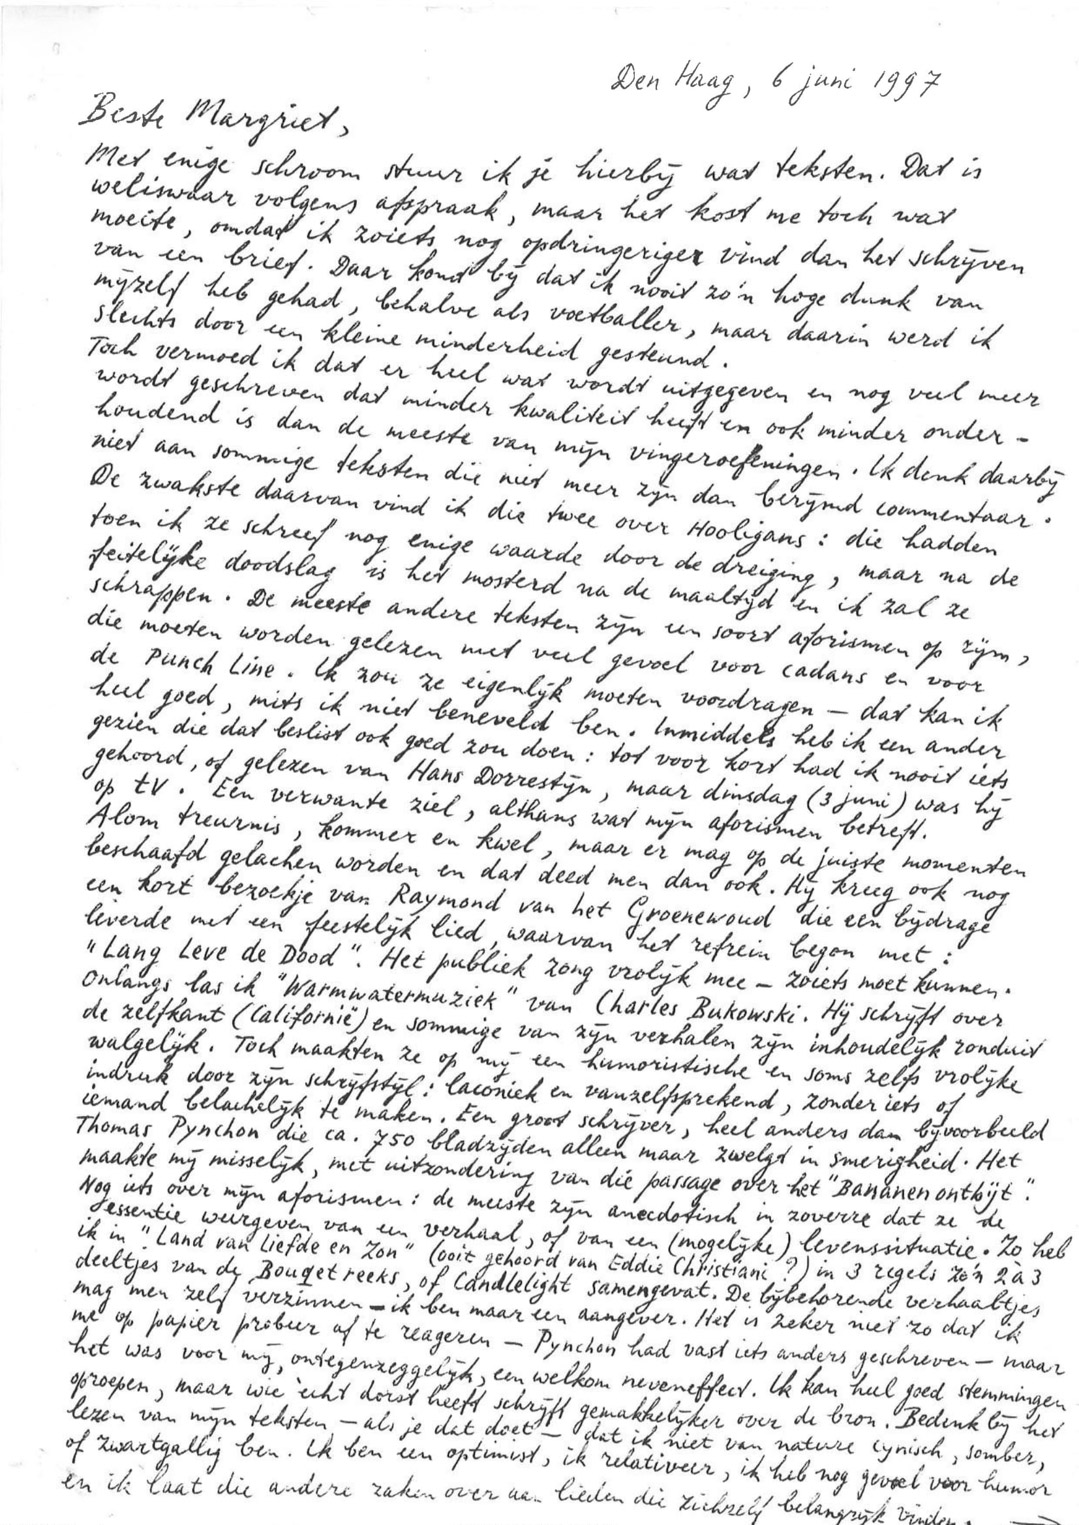 Den Haag, 6 juni 1997
Beste Margriet,
Met enige schroom stuur ik je hierbij wat teksten. Dat is
weliswaar volgens afspraak, maar het kost me toch wat
moeite, omdat ik zoiets nog opdringeriger vind dan het schrijven
van een brief. Daar komt bij dat ik nooit zo'n hoge dunk van
mijzelf heb gehad, behalve als voetballer, maar daarin werd ik
slechts door een kleine minderheid gesteund.
Toch vermoed ik dat er heel wat wordt uitgegeven en nog veel meer
wordt geschreven dat minder kwaliteit heeft en ook minder onder-
houdend is dan de meeste van mijn vingeroefeningen. Ik denk daarbij
niet aan sommige teksten die niet meer zijn dan berijmd commentaar.
De zwakste daarvan vind ik die twee over Hooligans: die hadden
toen ik ze schreef nog enige waarde door de dreiging, maar na de
feitelijke doodslag is het mosterd na de maaltijd en ik zal ze
schrappen. De meeste andere teksten zijn een soort aforismen op rijm,
die moeten worden gelezen met veel gevoel voor cadans en voor
de Punch Line. Ik zou ze eigenlijk moeten voordragen – dat kan ik
heel goed, mits ik niet beneveld ben. Inmiddels heb ik een ander
gezien die dat beslist ook goed zou doen: tot voor kort had ik nooit iets
gehoord, of gelezen van Hans Dorrestijn, maar dinsdag (3 juni) was hij
op tv. Een verwante ziel, althans wat mijn aforismen betreft.
Alom treurnis, kommer en kwel, maar er mag op de juiste momenten
beschaafd gelachen worden en dat deed men dan ook. Hij kreeg ook nog
een kort bezoekje van Raymond van het Groenewoud die een bijdrage
leverde met een feestelijk lied, waarvan het refrein begon met:
"Lang Leve de Dood". Het publiek zong vrolijk mee – zoiets moet kunnen.
Onlangs las ik "Warmwatermuziek" van Charles Bukowski. Hij schrijft over
de zelfkant (Californië) en sommige van zijn verhalen zijn inhoudelijk ronduit
walgelijk. Toch maakten ze op mij een humoristische en soms zelfs vrolijke
indruk door zijn schrijfstijl: laconiek en vanzelfsprekend, zonder iets of
iemand belachelijk te maken. Een groot schrijver, heel anders dan bijvoorbeeld
Thomas Pynchon die ca. 750 bladzijden alleen maar zwelgt in smerigheid. Het
maakte mij misselijk, met uitzondering van die passage over het "Bananenontbijt".
Nog iets over mijn aforismen: de meeste zijn anecdotisch in zoverre dat ze de
essentie weergeven van een verhaal, of van een (mogelijke) levenssituatie. Zo heb
ik in "Land van Liefde en Zon" (ooit gehoord van Eddie Christiani?) in 3 regels zo'n 2 à 3
deeltjes van de Bouqetreeks, of Candlelight samengevat. De bijbehorende verhaaltjes
mag men zelf verzinnen – ik ben maar een aangever. Het is zeker niet zo dat ik
me op papier probeer af te reageren – Pynchon had vast iets anders geschreven – maar
het was voor mij, ontegenzeggelijk, een welkom neveneffect. Ik kan heel goed stemmingen
oproepen, maar wie echt dorst heeft schrijft gemakkelijker over de bron. Bedenk bij het
lezen van mijn teksten – als je dat doet – dat ik niet van nature cynisch, somber,
of zwartgallig ben. Ik ben een optimist, ik relativeer, ik heb nog gevoel voor humor
en ik laat die andere zaken over aan lieden die zichzelf belangrijk vinden. →